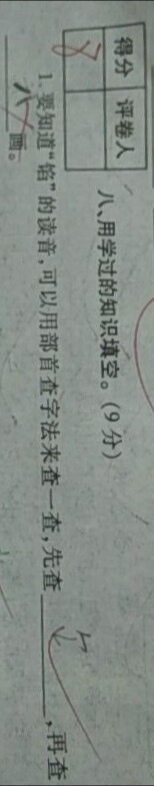 得分 评卷人
8
八、用学过的知识填空。(9分)
1.要知道“馅”的读音,可以用部首查字法来查一查,先查 饣 ,再查
八 画。